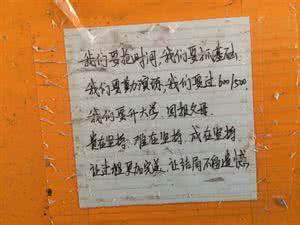 我们要抢时间,我们要抓基础.
我们要勤演练,我们要过600/500
我们要升大学 回报父母.
贵在坚持、难在坚持、成在坚持.
让过程更加完美,让结局不留遗憾